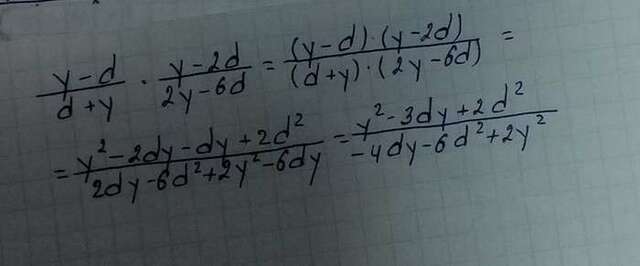 (y-d)/(d+y) · (y-2d)/(2y-6d) = ((y-d)·(y-2d))/((d+y)·(2y-6d)) =
= (y²-2dy-dy+2d²)/(2dy-6d²+2y²-6dy) = (y²-3dy+2d²)/(-4dy-6d²+2y²)